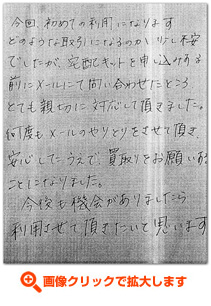 今回、初めての利用になります
どのような取引になるのか少し不安
でしたが、宅配キットを申し込みする
前にメールにて問い合わせたところ
とても親切に対応して頂きました。
何度もメールのやりとりをさせて頂き、
安心したうえで、買取りをお願いする
ことになりました。
今後も機会がありましたら
利用させて頂きたいと思います
画像クリックで拡大します